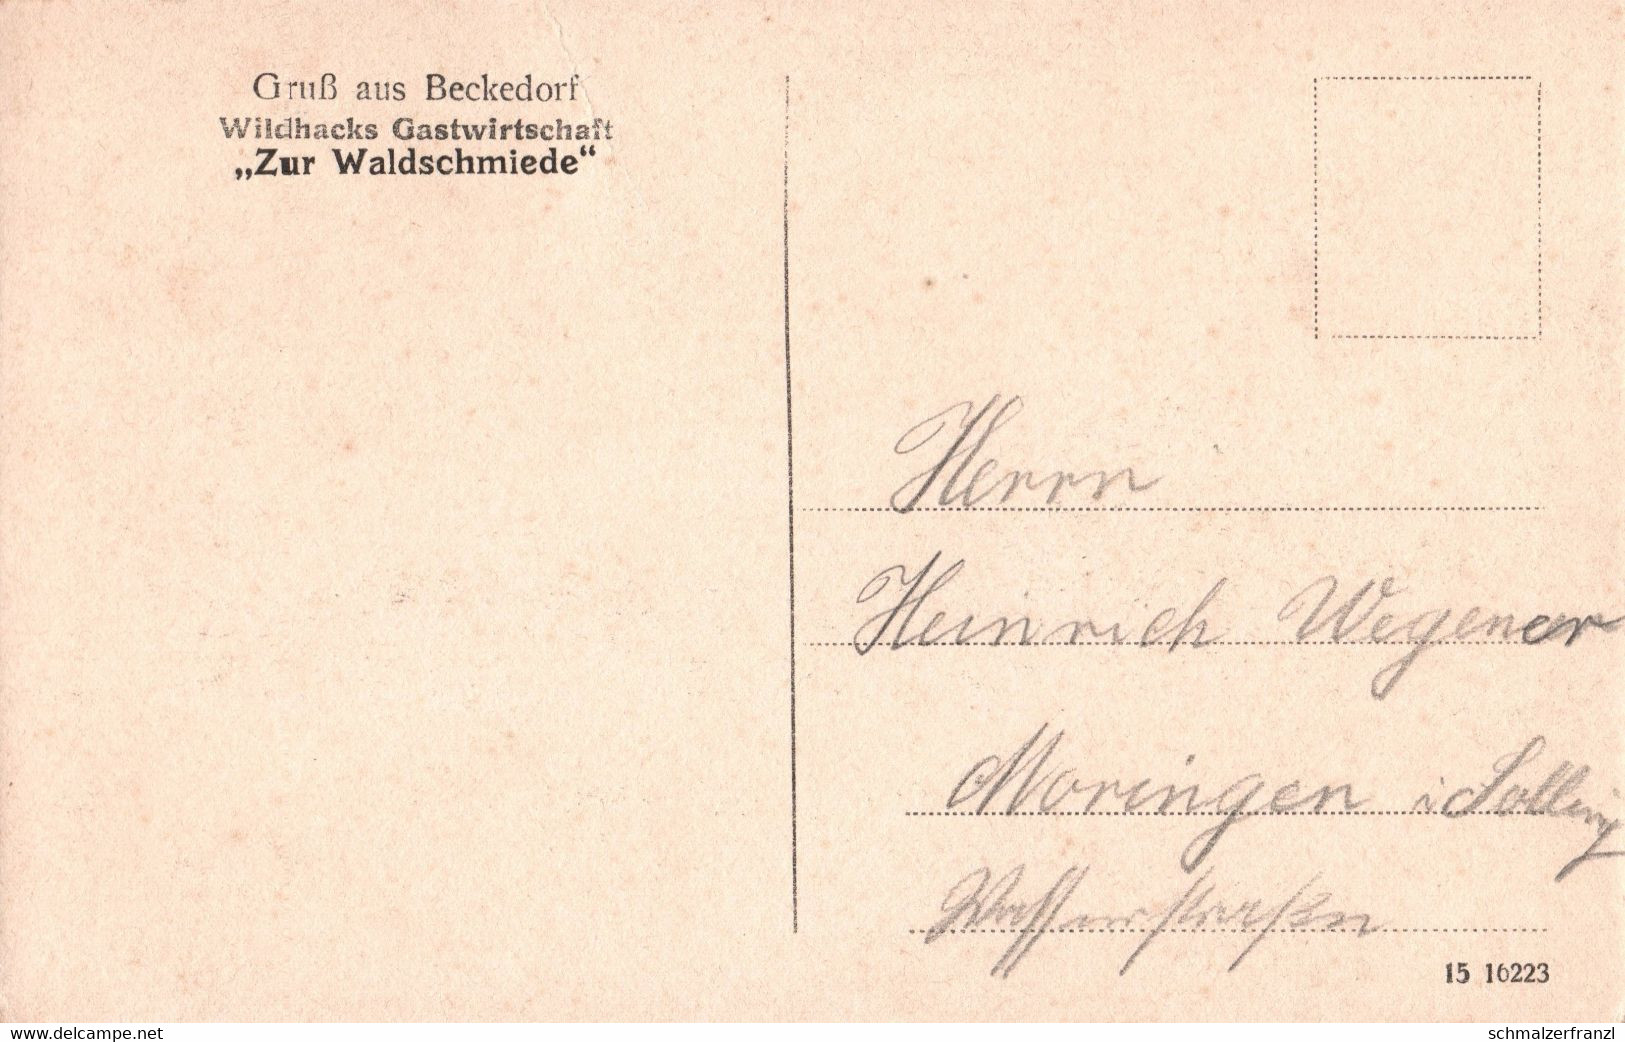 Gruß aus Beckedorf
Wildhacks Gastwirtschaft
„Zur Waldschmiede“
Herrn
Heinrich Wegener
Moringen i Solling
Wasserstraße
15 16223
www.delcampe.net
schmalzerfranzl